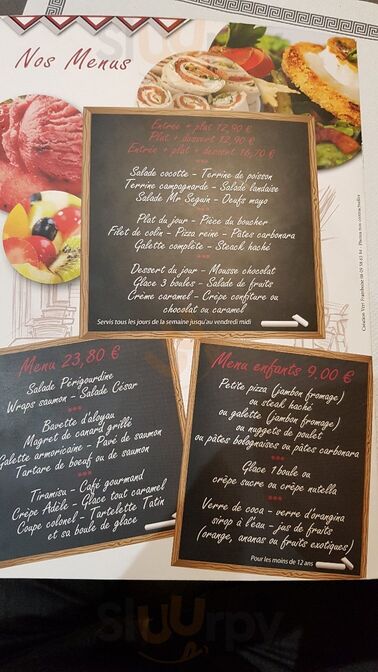 Nos Menus
Entrée + plat 12,90 €
Plat + dessert 12,90 €
Entrée + plat + dessert 16,70 €
***
Salade cocotte - Terrine de poisson
Terrine campagnarde - Salade landaise
Salade Mr Seguin - Oeufs mayo
***
Plat du jour - Pièce du boucher
Filet de colin - Pizza reine - Pates carbonara
Galette complète - Steack haché
***
Dessert du jour - Mousse chocolat
Glace 3 boules - Salade de fruits
Creme caramel - Crêpe confiture ou
chocolat ou caramel
Servis tous les jours de la semaine jusqu'au vendredi midi
Menu 23,80 €
Salade Périgourdine
Wraps saumon - Salade César
***
Bavette d'aloyau
Magret de canard grillé
Galette armoricaine - Pavé de saumon
Tartare de boeuf ou de saumon
***
Tiramisu - Café gourmand
Crêpe Adèle - Glace tout caramel
Coupe colonel - Tartelette Tatin
et sa boule de glace
Menu enfants 9.00 €
Petite pizza (jambon fromage)
ou steak haché
ou galette (jambon fromage)
ou nuggets de poulet
ou pâtes bolognaises ou pâtes carbonara
***
Glace 1 boule ou
crêpe sucre ou crêpe nutella
***
Verre de coca - verre d'orangina
sirop à l'eau - jus de fruits
(orange, ananas ou fruits exotiques)
Pour les moins de 12 ans
Sluurpy